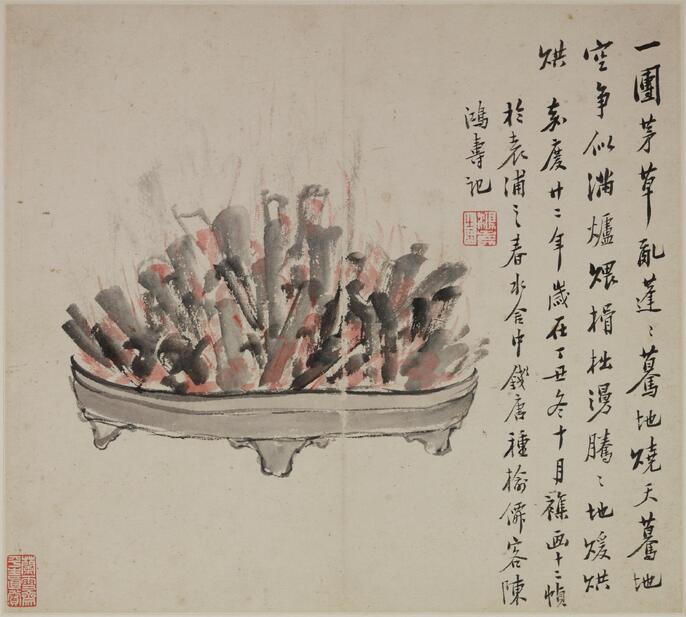 一團茅草亂蓬〻驀地燒天驀地
空爭似滿爐煨榾柮漫騰〻地煖烘
烘 嘉慶廿二年歲在丁丑冬十月雜画十二幀
於袁浦之春水舍中錢唐種榆僊客陳
鴻壽記